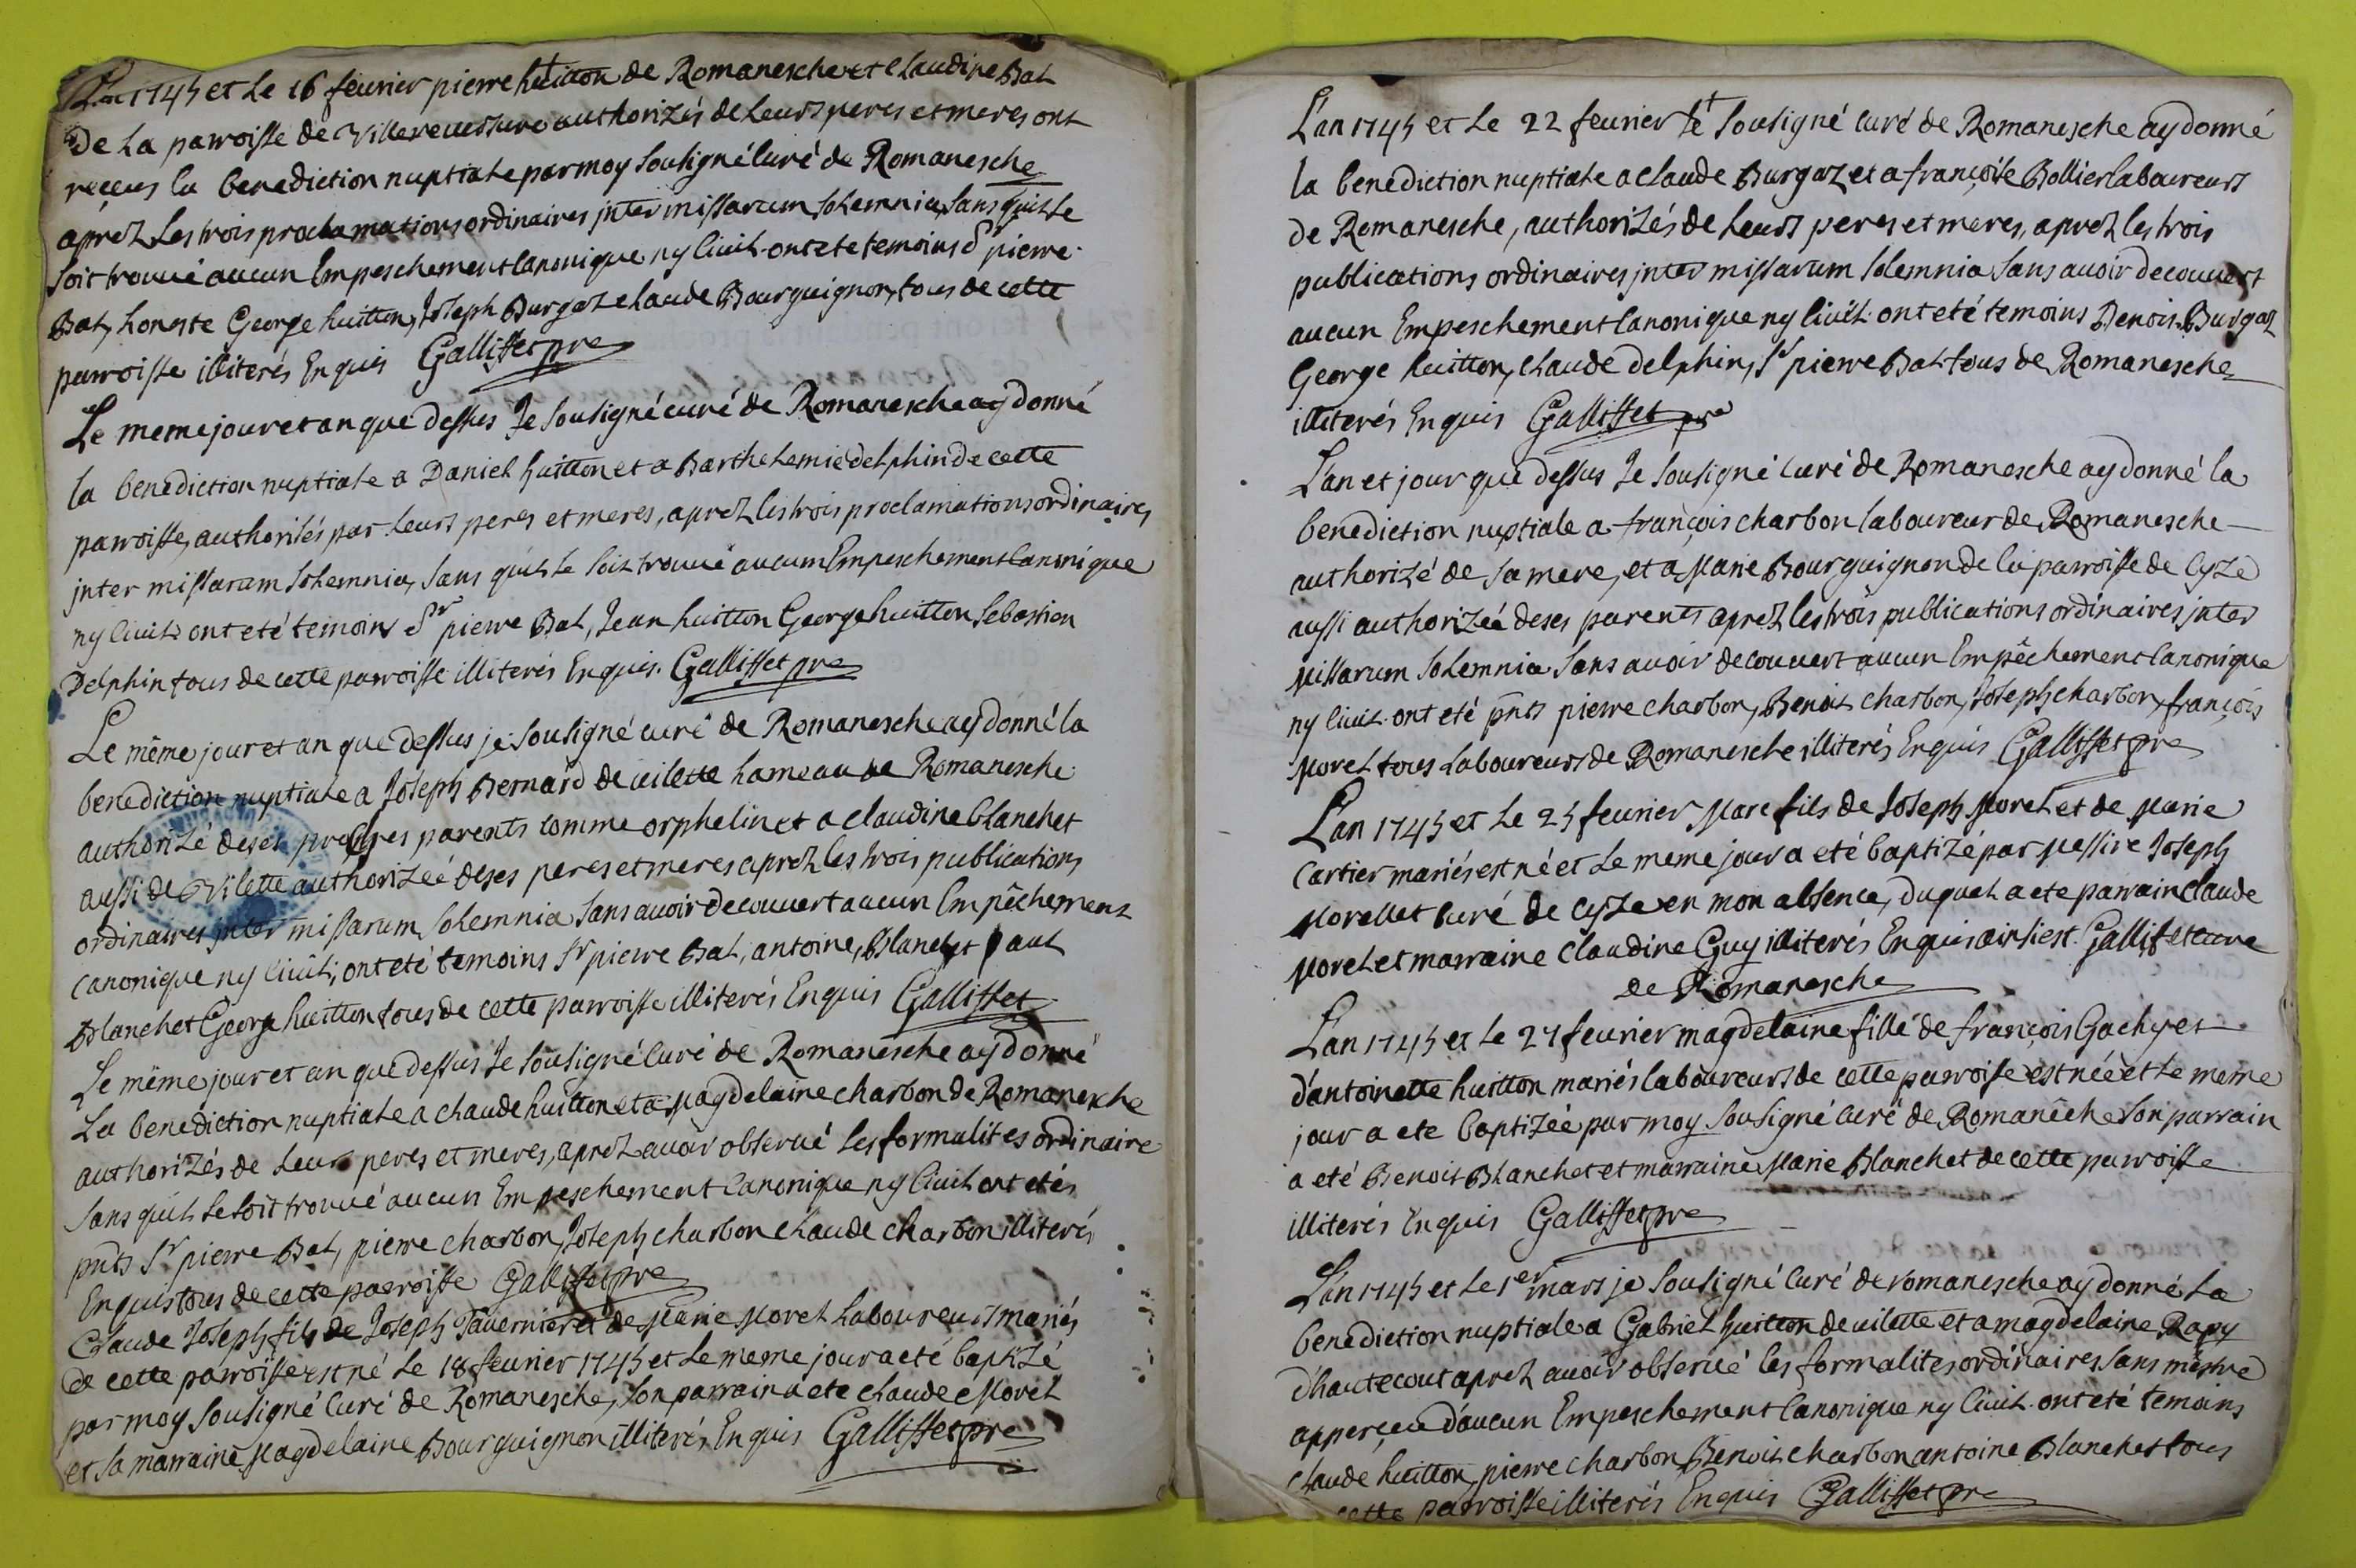 L'an 1745 et Le 16 feurier pierre huitton de Romanesche et claudine Bal
De La parroisse de Villereuersure authorizés de Leurs peres et meres ont
reçeus la benediction nuptiale par moy sousigné Curé de Romanesche
aprez Les trois proclamations ordinaires jnter missarum solemnia, sans quil se
soit trouué aucun Empeschement Canonique ny Ciuil. ont ete temoins Sr pierre
Bal, honeste George huitton, Joseph Burgaz claude Bourguignon, tous de cette
parroisse illiterés Enquis Galliffet pre
Le meme jour et an que dessus Je sousigné curé de Romanesche ay donné
la benediction nuptiale a Daniel huitton et a Barthelemie delphin de cette
parroisse, authorisés par leurs peres et meres, aprez les trois proclamations ordinaires
jnter missarum solemnia, sans quil se soit trouué aucum Empeschement Canonique
ny Ciuil. ont eté temoins Sr pierre Bal, Jean huitton George huitton Sebastien
Delphin tous de cette parroisse illiterés Enquis. Galliffet pre
Le même jour et an que dessus je sousigné curé de Romanesche ay donné la
benediction nuptiale a Joseph Bernard de uilette hameau de Romanesche
authorizé de ses proches parents comme orphelin et a claudine blanchet
aussi de Vilette authorizée de ses peres et meres aprez les trois publications
ordinaires jnter missarum solemnia sans auoir decouuert aucun Empêchement
canonique ny Ciuil; ont eté temoins Sr pierre Bal, antoine, Blanchet paul
Blanchet George huitton tous de cette parroisse illiterés Enquis Galliffet
Le même jour et an que dessus Je sousigné Curé de Romanesche ay donné
La benediction nuptiale a claude huitton et a Magdelaine charbon de Romanesche
authorizés de Leurs peres et meres, aprez auoir obserué les formalites ordinaire
sans quil se soit trouué aucun Empeschement Canonique ny Ciuil ont etés
pnts Sr pierre Bal, pierre charbon, Joseph charbon claude charbon illiterés
Enquis tous de cette parroisse Galliffet pre
Claude Joseph fils de Joseph Tauernier et de Marie Morel Laboureurs mariés
de cette parroisse est né Le 18 feurier 1745 et Le meme jour a eté baptizé
par moy sousigné Curé de Romanesche, son parrain a ete claude Morel
et sa marraine Magdelaine Bourguignon illiterés Enquis Galliffet pre
L'an 1745 et Le 22 feurier Je sousigné Curé de Romanesche ay donné
la benediction nuptiale a claude Burgaz et a françoise Bollier laboureurs
de Romanesche, authorizés de Leurs peres et meres, aprez les trois
publications ordinaires jnter missarum solemnia sans auoir decouuert
aucun Empeschement Canonique ny Ciuil. ont eté temoins Benois Burgaz
George huitton, claude delphin, Sr pierre Bal tous de Romanesche
illiterés Enquis Galliffet pre
L'an et jour que dessus Je sousigné Curé de Romanesche ay donné la
benediction nuptiale a françois charbon laboureur de Romanesche
authorizé de sa mere, et a Marie Bourguignon de la parroisse de Cyze
aussi authorizée de ses parents aprez les trois publications ordinaires jnter
Missarum solemnia sans auoir decouuert aucun Empêchement Canonique
ny Ciuil. ont eté pnts pierre charbon, Benois charbon, Joseph charbon, françois
Morel tous Laboureurs de Romanesche illiterés Enquis Galliffet pre
L'an 1745 et Le 25 feurier Marc fils de Joseph Morel et de Marie
Cartier mariés est né et Le meme jour a eté baptizé par Messire Joseph
Morellet curé de Cyze en mon absence, duquel a ete parrain claude
Morel et marraine claudine Guy illiterés Enquis ainsi est. Galliffet cure
de Romanesche
L'an 1745 et Le 27 feurier magdelaine fille de françois Gachy et
d'antoinette huitton mariés laboureurs de cette parroisse est née et Le meme
jour a ete baptizée par moy sousigné Curé de Romanêche son parrain
a eté Benoit Blanchet et marraine Marie Blanchet de cette parroisse
illiterés Enquis Galliffet pre
L'an 1745 et Le 1er mars je sousigné Curé de romanesche ay donné La
benediction nuptiale a Gabriel huitton de uilette et a magdelaine Rapy
d'hautecour aprez auoir obserué les formalites ordinaires sans m'estre
apperçeu d'aucun Empeschement Canonique ny Ciuil. ont eté temoins
claude huitton, pierre charbon Benois charbon antoine Blanchet tous
cette parroisse illiterés Enquis Galliffet pre